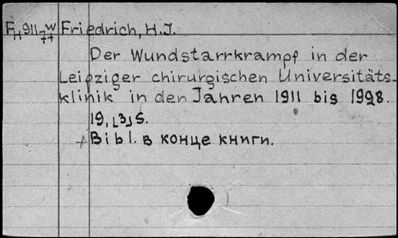 Friedrich, H.J.
Der Wundstarrkrampf in der
Leipziger chirurgischen Universitäts-
klinik in den Jahren 1911 bis 1928.
19, S.
Bibl. в конце книги.